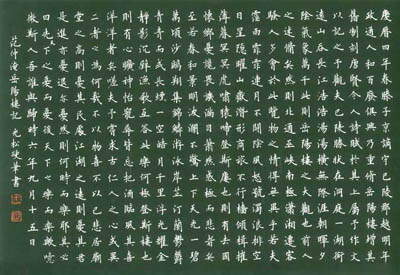 慶曆四年春滕子京謫守巴陵郡越明年
政通人和百廢俱興乃重修岳陽樓增其
舊制刻唐賢今人詩賦於其上屬予作文
以記之予觀夫巴陵勝狀在洞庭一湖銜
遠山吞長江浩浩湯湯橫無際涯朝暉夕
陰氣象萬千此則岳陽樓之大觀也前人
之述備矣然則北通巫峽南極瀟湘遷客
騷人多會於此覽物之情得無異乎若夫
霪雨霏霏連月不開陰風怒號濁浪排空
日星隱曜山岳潛形商旅不行檣傾楫摧
薄暮冥冥虎嘯猿啼登斯樓也則有去國
懷鄉憂讒畏譏滿目蕭然感極而悲者矣
至若春和景明波瀾不驚上下天光一碧
萬頃沙鷗翔集錦鱗游泳岸芷汀蘭鬱鬱
青青而或長煙一空皓月千里浮光耀金
靜影沉璧漁歌互答此樂何極登斯樓也
則有心曠神怡寵辱皆忘把酒臨風其喜
洋洋者矣嗟夫予嘗求古仁人之心或異
二者之為何哉不以物喜不以己悲居廟
堂之高則憂其民處江湖之遠則憂其君
是進亦憂退亦憂然則何時而樂耶其必
曰先天下之憂而憂後天下之樂而樂歟噫
微斯人吾誰與歸時六年九月十五日
范仲淹岳陽樓記 華書